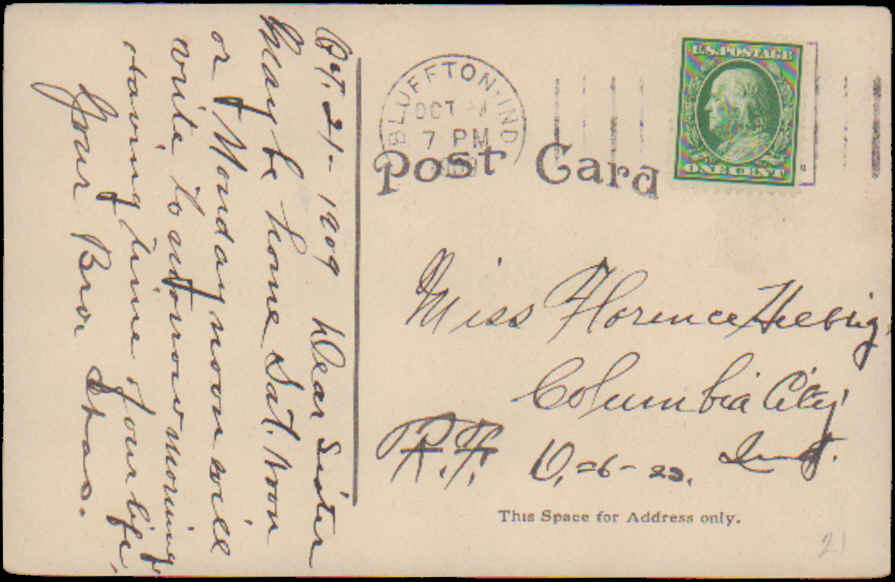 Oct. 21 - 1909 Dear Sister
May be home Sat. noon
or Monday noon will
write tomorrow morning
Having time of our life,
Your Bro. Chas.
BLUFFTON·IND
OCT
7 PM
U.S. POSTAGE
ONE CENT
Post Card
Miss Florence Helbig
Columbia City
R.F. D. #6 Ind.
This Space for Address only.
21